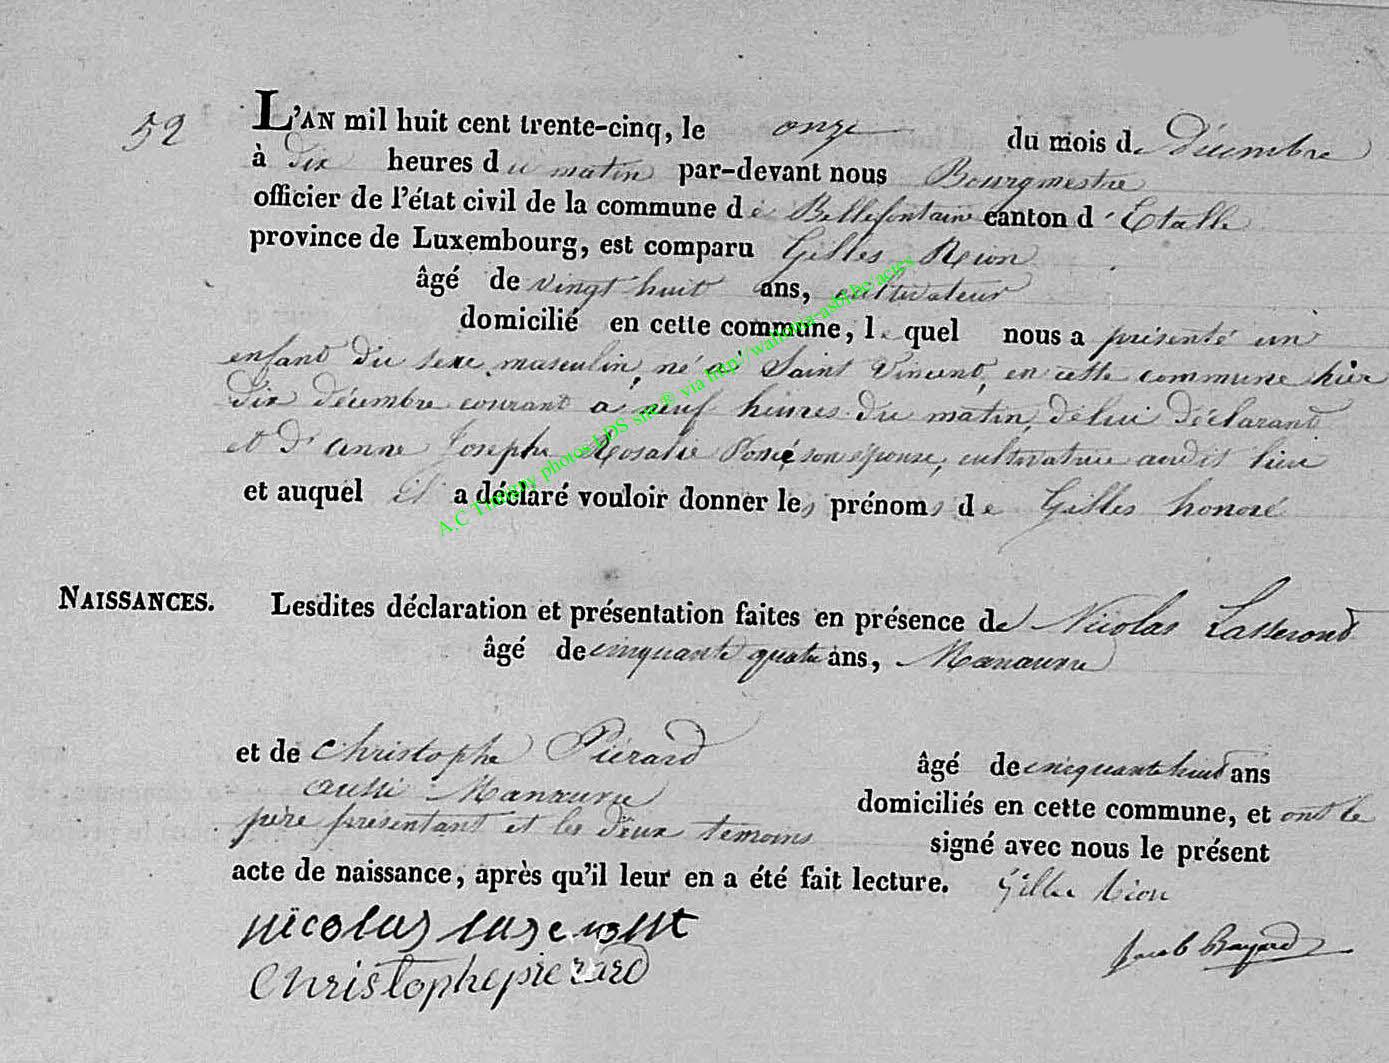 52
L'AN mil huit cent trente-cinq, le onze du mois de Décembre
à Dix heures du matin par-devant nous Bourgmestre
officier de l'état civil de la commune de Bellefontaine canton d'Etalle
province de Luxembourg, est comparu Gilles Rion
âgé de vingt huit ans, cultivateur
domicilié en cette commune, lequel nous a présenté un
enfant du sexe masculin, né à Saint Vincent, en cette commune hier
Dix décembre courant a neuf heures du matin, de lui déclarant
et d'anne Joseph Rosalie son épouse, cultivatrice audit lieu
et auquel il a déclaré vouloir donner les prénoms de Gilles honoré
A.C Tintigny photos LDS site® via http://wallonia-asbl.be/actes
NAISSANCES.
Lesdites déclaration et présentation faites en présence de Nicolas Lasserond
âgé de cinquante quatre ans, Manœuvre
et de Christophe Piérard âgé de cincquante huit ans
aussi Manœuvre domiciliés en cette commune, et ont le
père présentant et les deux temoins signé avec nous le présent
acte de naissance, après qu'il leur en a été fait lecture. Gille Rion
nicolas
Christophe pierard
Jacob Bayard